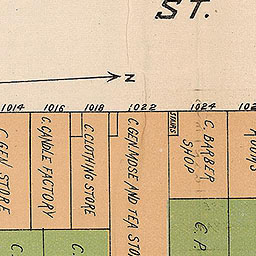 ST.
N
1014 1016 1018 1022 1024
C. GEN. STORE
C. CANDLE FACTORY
C. CLOTHING STORE
C. GEN. MDSE AND TEA STO
STAIRS
C. BARBER
SHOP
C.
C.
C. P.